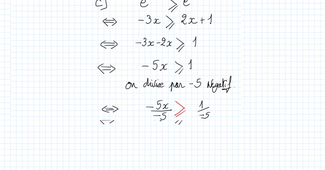 c) e ≥ e
⇔ -3x ≥ 2x+1
⇔ -3x-2x ≥ 1
⇔ -5x ≥ 1
on divise par -5 négatif
⇔ -5x/-5 ≥ 1/-5
⇔